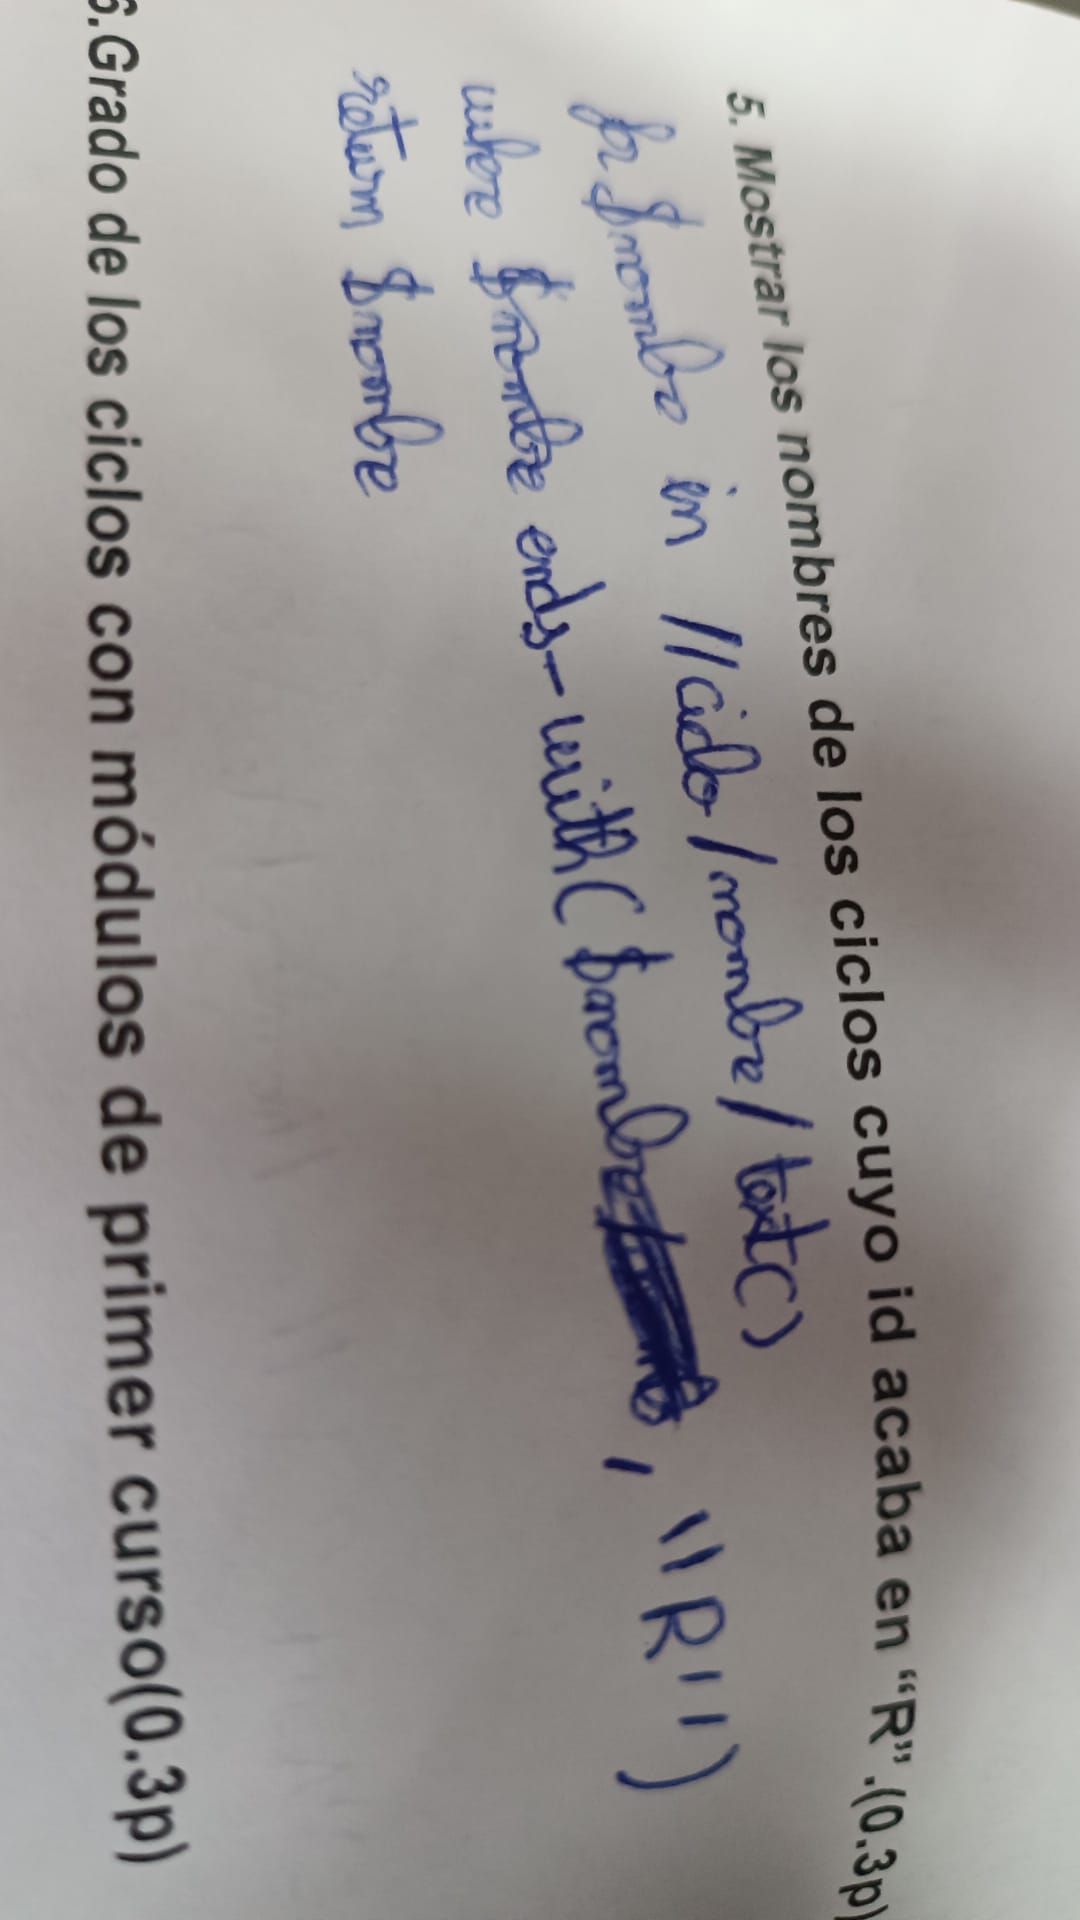 5. Mostrar los nombres de los ciclos cuyo id acaba en “R”.(0.3p)
for $nombre in //ciclo/nombre/text()
where $nombre ends-with($nombre, "R")
return $nombre
6.Grado de los ciclos con módulos de primer curso(0.3p)